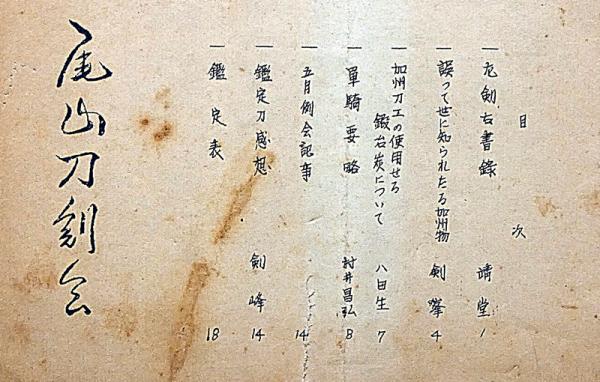 目次
一 左剣右書録 靖堂 1
一 誤って世に知られたる加州物 剣峯 4
一 加州刀工の使用せる
鍛冶炭について 八田生 7
一 單騎要略 村井昌弘 8
一 五月例会記事 14
一 鑑定刀感想 剣峰 14
一 鑑定表 18
尾山刀剣会